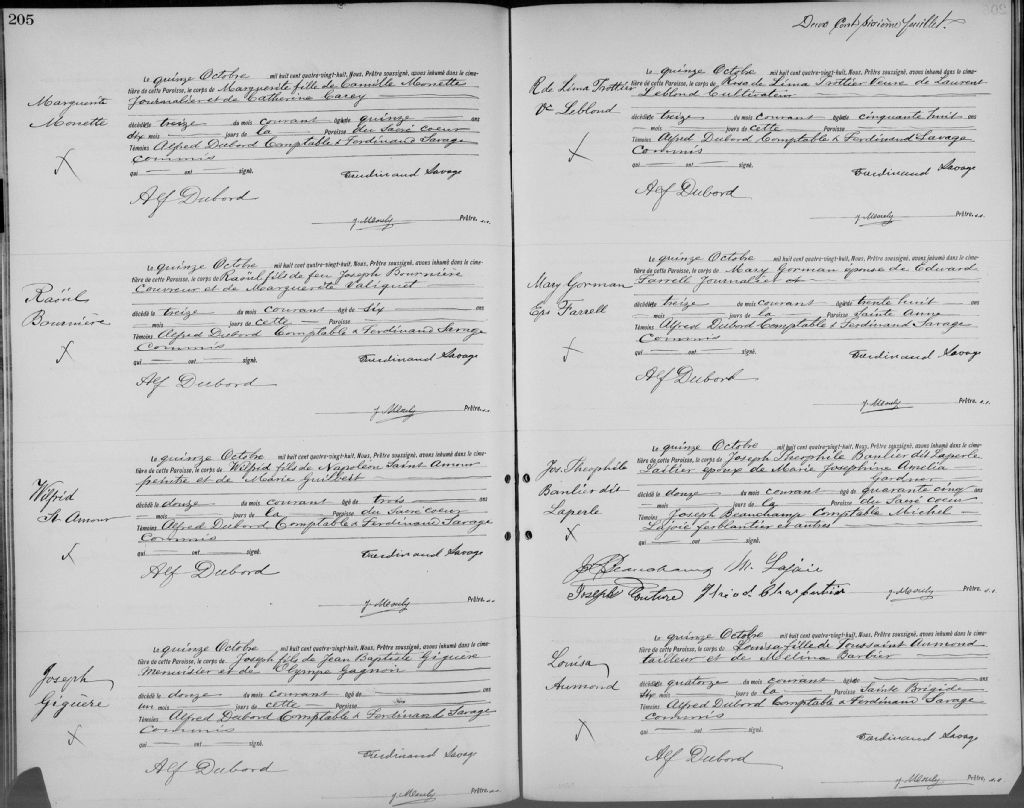 205
Marguerite
Monette
Le quinze Octobre mil huit cent quatre-vingt-huit. Nous, Prêtre soussigné, avons inhumé dans le cime-
tière de cette Paroisse, le corps de Marguerite fille de Camille Monette
Journalier et de Catherine Carey
décédée le treize du mois courant âgée de quinze ans
six mois — jours de la Paroisse du Sacré coeur
Témoins Alfred Dubord Comptable & Ferdinand Savage
Commis
qui — ont — signé. Ferdinand Savage
Alf Dubord
Prêtre, s.s.
Raöul
Bournière
Le quinze Octobre mil huit cent quatre-vingt-huit. Nous, Prêtre soussigné, avons inhumé dans le cime-
tière de cette Paroisse, le corps de Raöul fils de feu Joseph Bournière
Couvreur et de Marguerite Valiquet
décédé le treize du mois courant âgé de six ans
— mois — jours de cette Paroisse
Témoins Alfred Dubord Comptable & Ferdinand Savage
Commis
qui — ont — signé. Ferdinand Savage
Alf Dubord
Prêtre, s.s.
Wilfrid
St. Amour
Le quinze Octobre mil huit cent quatre-vingt-huit. Nous, Prêtre soussigné, avons inhumé dans le cime-
tière de cette Paroisse, le corps de Wilfrid fils de Napoléon Saint Amour
peintre et de Marie Guilbert
décédé le douze du mois courant âgé de trois ans
— mois — jours de la Paroisse du Sacré coeur
Témoins Alfred Dubord Comptable & Ferdinand Savage
Commis
qui — ont — signé. Ferdinand Savage
Alf Dubord
Prêtre, s.s.
Joseph
Giguère
Le quinze Octobre mil huit cent quatre-vingt-huit. Nous, Prêtre soussigné, avons inhumé dans le cime-
tière de cette Paroisse, le corps de Joseph fils de Jean Baptiste Giguère
Menuisier et de Olympe Gagnon
décédé le douze du mois courant âgé de — ans
un mois — jours de cette Paroisse
Témoins Alfred Dubord Comptable & Ferdinand Savage
Commis
qui — ont — signé. Ferdinand Savage
Alf Dubord
Prêtre, s.s.
Deux Cent sixième feuillet.
R. de Lima Trottier
Ve Leblond
Le quinze Octobre mil huit cent quatre-vingt-huit. Nous, Prêtre soussigné, avons inhumé dans le cime-
tière de cette Paroisse, le corps de Rose de Lima Trottier Veuve de Laurent
Leblond Cultivateur
décédée le treize du mois courant âgée de cinquante huit ans
— mois — jours de cette Paroisse
Témoins Alfred Dubord Comptable & Ferdinand Savage
Commis
qui — ont — signé. Ferdinand Savage
Alf Dubord
Prêtre, s.s.
Mary Gorman
Eps Farrell
Le quinze Octobre mil huit cent quatre-vingt-huit. Nous, Prêtre soussigné, avons inhumé dans le cime-
tière de cette Paroisse, le corps de Mary Gorman épouse de Edward
Farrell Journalier
décédée le treize du mois courant âgée de trente huit ans
— mois — jours de la Paroisse Sainte Anne
Témoins Alfred Dubord Comptable & Ferdinand Savage
Commis
qui — ont — signé. Ferdinand Savage
Alf Dubord
Prêtre, s.s.
Jos. Théophile
Banlier dit
Laperle
Le quinze Octobre mil huit cent quatre-vingt-huit. Nous, Prêtre soussigné, avons inhumé dans le cime-
tière de cette Paroisse, le corps de Joseph Théophile Banlier dit Laperle
Laitier époux de Marie Josephine Amelia
Gardner
décédé le douze du mois courant âgé de quarante cinq ans
— mois — jours de la Paroisse du Sacré coeur
Témoins Joseph Beauchamp Comptable Michel
Lajoie ferblantier et autres
qui — ont — signé.
Jos Beauchamp M. Lajoie
Joseph Couture Charpentier
Prêtre, s.s.
Louisa
Aumond
Le quinze Octobre mil huit cent quatre-vingt-huit. Nous, Prêtre soussigné, avons inhumé dans le cime-
tière de cette Paroisse, le corps de Louisa fille de Toussaint Aumond
tailleur et de Mélina Barbier
décédée le quatorze du mois courant âgée de — ans
six mois — jours de la Paroisse Sainte Brigide
Témoins Alfred Dubord Comptable & Ferdinand Savage
Commis
qui — ont — signé. Ferdinand Savage
Alf Dubord
Prêtre, s.s.